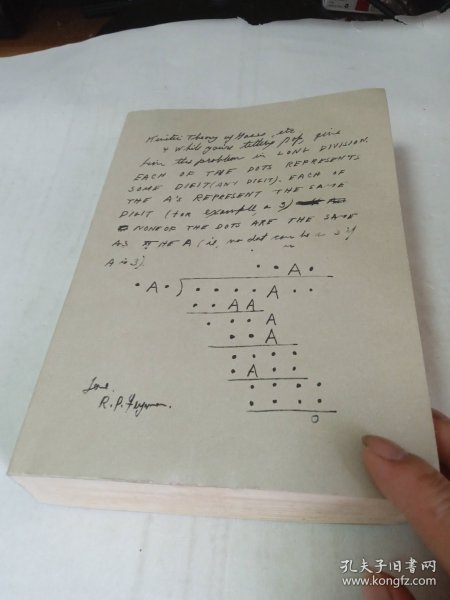 Kinetic Theory of Gases, etc.
& While you're telling Pop, give
him this problem in LONG DIVISION.
EACH OF THE DOTS REPRESENTS
SOME DIGIT (ANY DIGIT). EACH OF
THE A'S REPRESENT THE SAME
DIGIT (for example, a 3)
NONE OF THE DOTS ARE THE SAME
AS THE A (ie, no dot can be a 3 if
A is 3).
. . A .
. A . ) . . . . A . .
. . A A
. . . A
. . A
. . . .
. A . .
. . . .
. . . .
0
Love.
R. P. Feynman.
孔夫子旧书网
www.kongfz.com